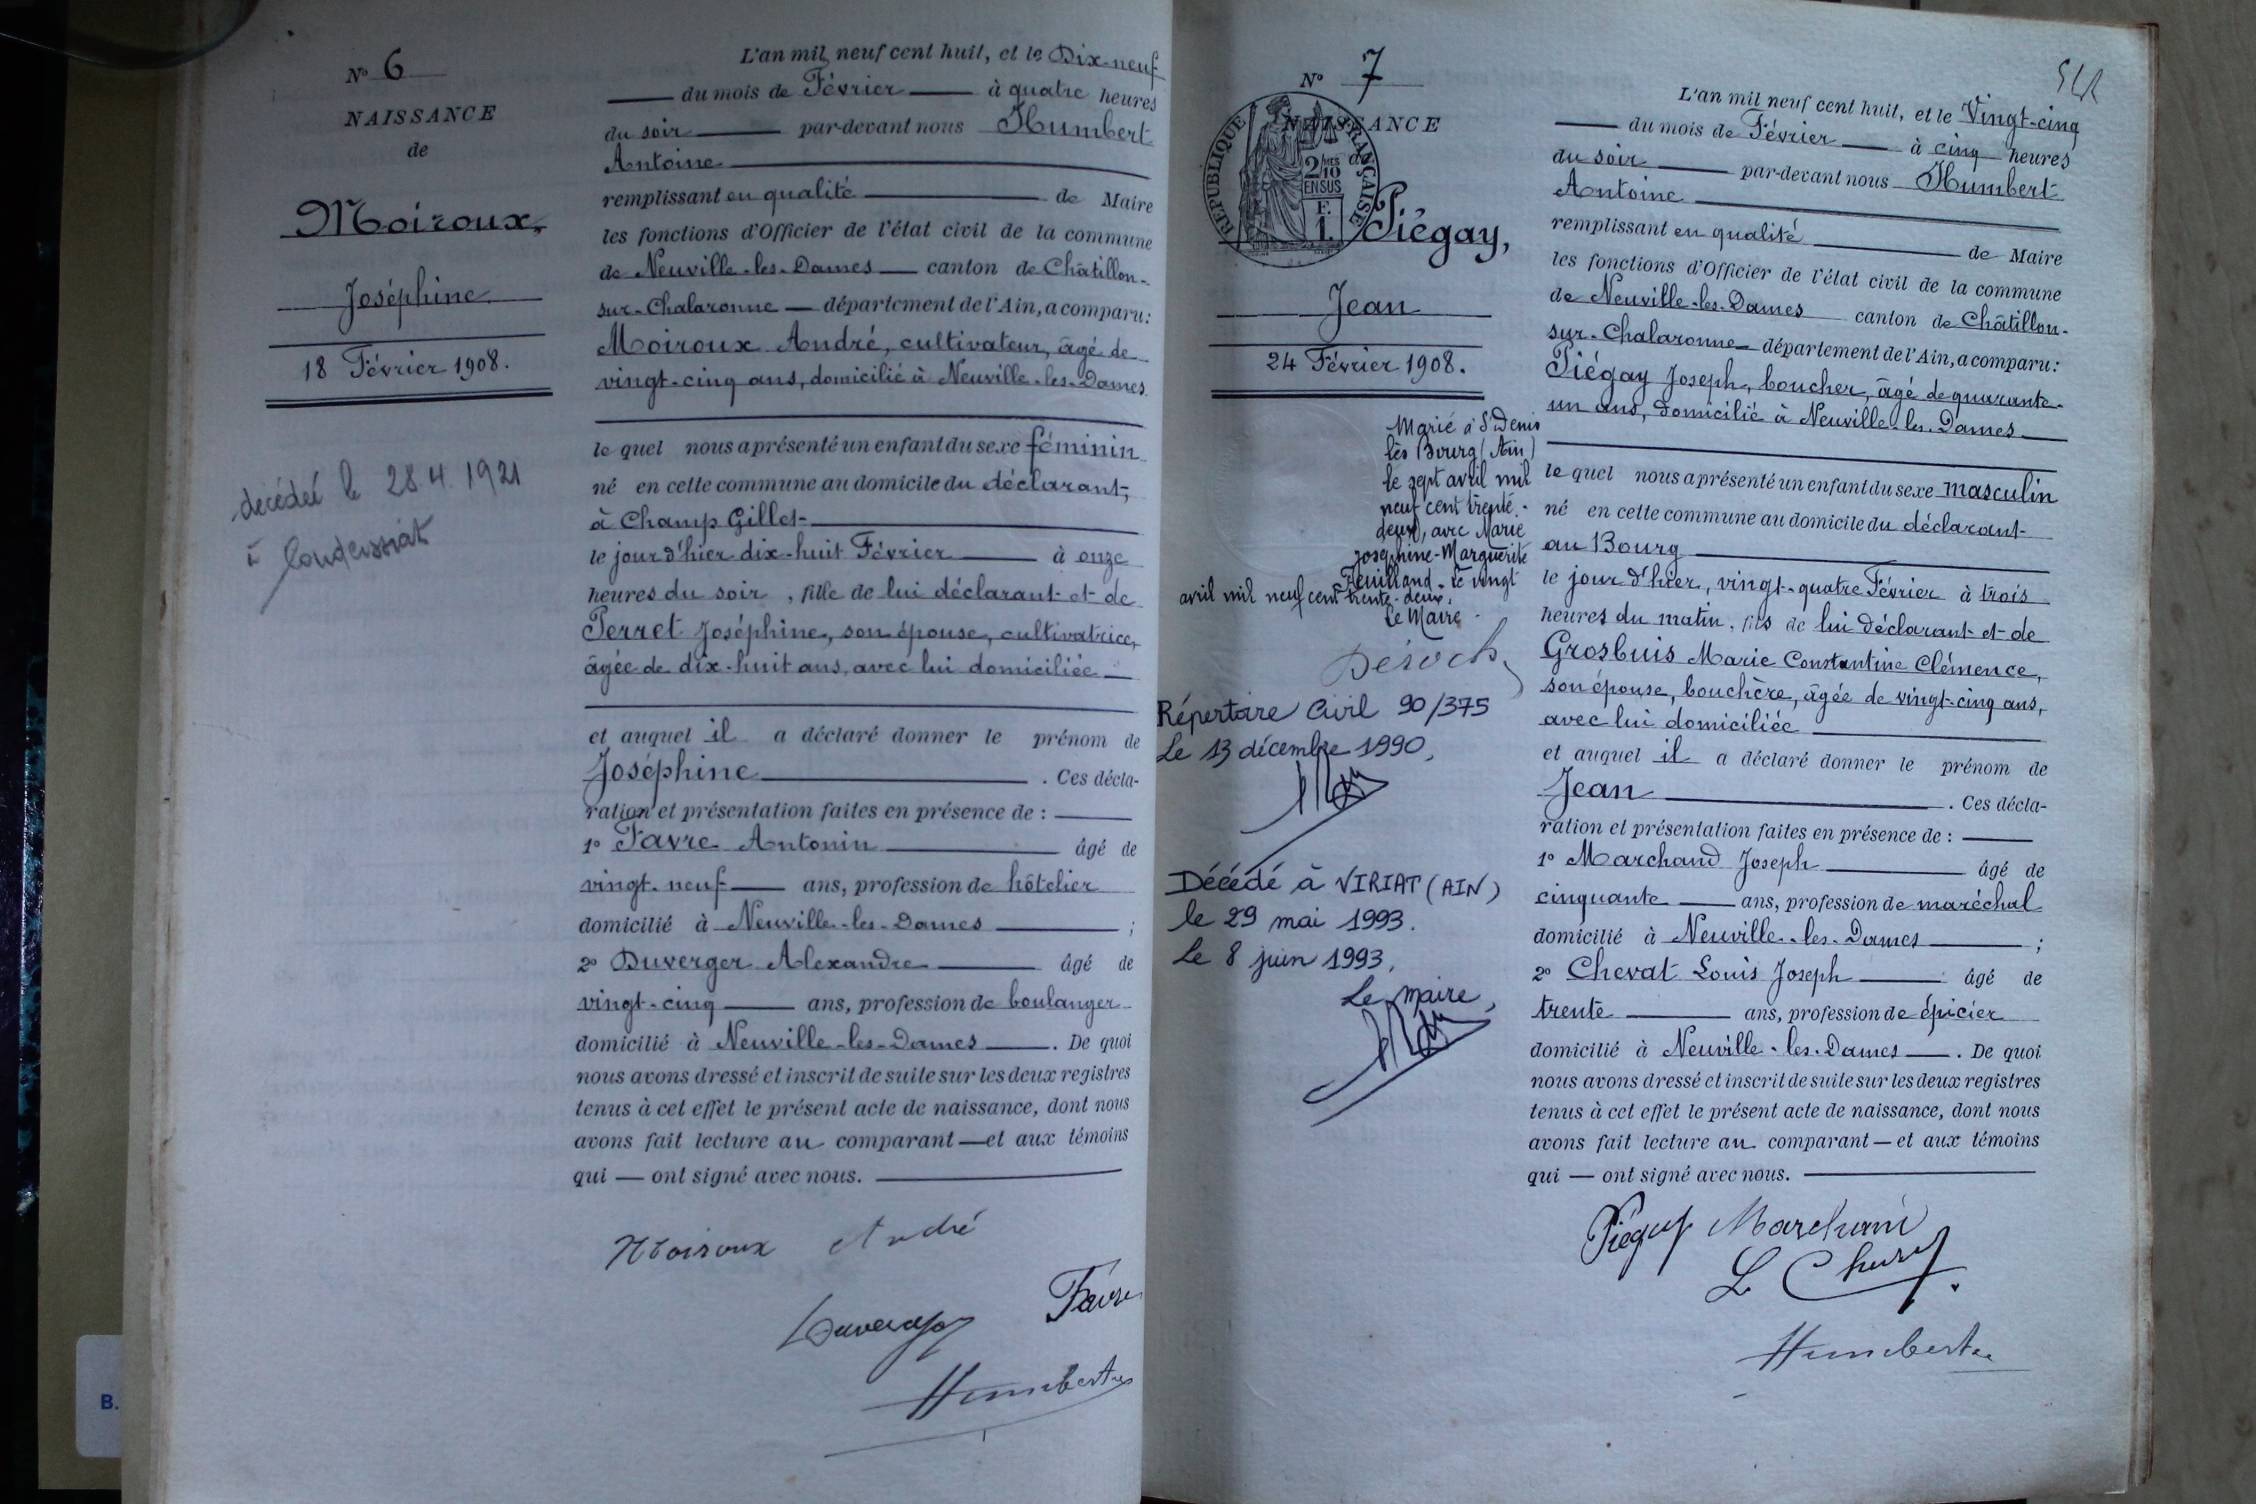 N° 6
NAISSANCE
de
Moiroux,
Joséphine
18 Février 1908.
décédée le 28.4.1921
à Condeissiat
L'an mil neuf cent huit, et le Dix-neuf
du mois de Février à quatre heures
du soir par-devant nous Humbert
Antoine
remplissant en qualité de Maire
les fonctions d'Officier de l'état civil de la commune
de Neuville-les-Dames canton de Châtillon-
sur-Chalaronne département de l'Ain, a comparu:
Moiroux André, cultivateur, âgé de
vingt-cinq ans, domicilié à Neuville-les-Dames
le quel nous a présenté un enfant du sexe féminin
né en cette commune au domicile du déclarant,
à Champ Gillet
le jour d'hier dix-huit Février à onze
heures du soir, fille de lui déclarant et de
Perret Joséphine, son épouse, cultivatrice,
âgée de dix-huit ans, avec lui domiciliée
et auquel il a déclaré donner le prénom de
Joséphine. Ces décla-
ration et présentation faites en présence de :
1° Favre Antonin âgé de
vingt-neuf ans, profession de hôtelier
domicilié à Neuville-les-Dames ;
2° Duverger Alexandre âgé de
vingt-cinq ans, profession de boulanger
domicilié à Neuville-les-Dames. De quoi
nous avons dressé et inscrit de suite sur les deux registres
tenus à cet effet le présent acte de naissance, dont nous
avons fait lecture au comparant — et aux témoins
qui — ont signé avec nous.
Moiroux André
Favre
Duverger
Humbert
B.
N° 7
NAISSANCE
de
RÉPUBLIQUE FRANÇAISE
2/10
EN SUS
F.
1.
Piégay,
Jean
24 Février 1908.
Marié à St Denis
lès Bourg (Ain)
le sept avril mil
neuf cent trente-
deux, avec Marie
Joséphine-Marguerite
Feuilland. Le vingt
avril mil neuf cent trente-deux.
Le Maire
Répertoire Civil 90/375
Le 13 décembre 1990,
Décédé à VIRIAT (AIN)
le 29 mai 1993.
Le 8 juin 1993,
Le maire,
L'an mil neuf cent huit, et le Vingt-cinq
du mois de Février à cinq heures
du soir par-devant nous Humbert
Antoine
remplissant en qualité de Maire
les fonctions d'Officier de l'état civil de la commune
de Neuville-les-Dames canton de Châtillon-
sur-Chalaronne département de l'Ain, a comparu:
Piégay Joseph, boucher, âgé de quarante-
un ans, domicilié à Neuville-les-Dames
le quel nous a présenté un enfant du sexe masculin
né en cette commune au domicile du déclarant
au Bourg
le jour d'hier, vingt-quatre Février à trois
heures du matin, fils de lui déclarant et de
Grosbuis Marie Constantine Clémence,
son épouse, bouchère, âgée de vingt-cinq ans,
avec lui domiciliée
et auquel il a déclaré donner le prénom de
Jean. Ces décla-
ration et présentation faites en présence de :
1° Marchand Joseph âgé de
cinquante ans, profession de maréchal
domicilié à Neuville-les-Dames ;
2° Chevat Louis Joseph âgé de
trente ans, profession de épicier
domicilié à Neuville-les-Dames. De quoi
nous avons dressé et inscrit de suite sur les deux registres
tenus à cet effet le présent acte de naissance, dont nous
avons fait lecture au comparant — et aux témoins
qui — ont signé avec nous.
Piégay Marchand
L Chevat
Humbert